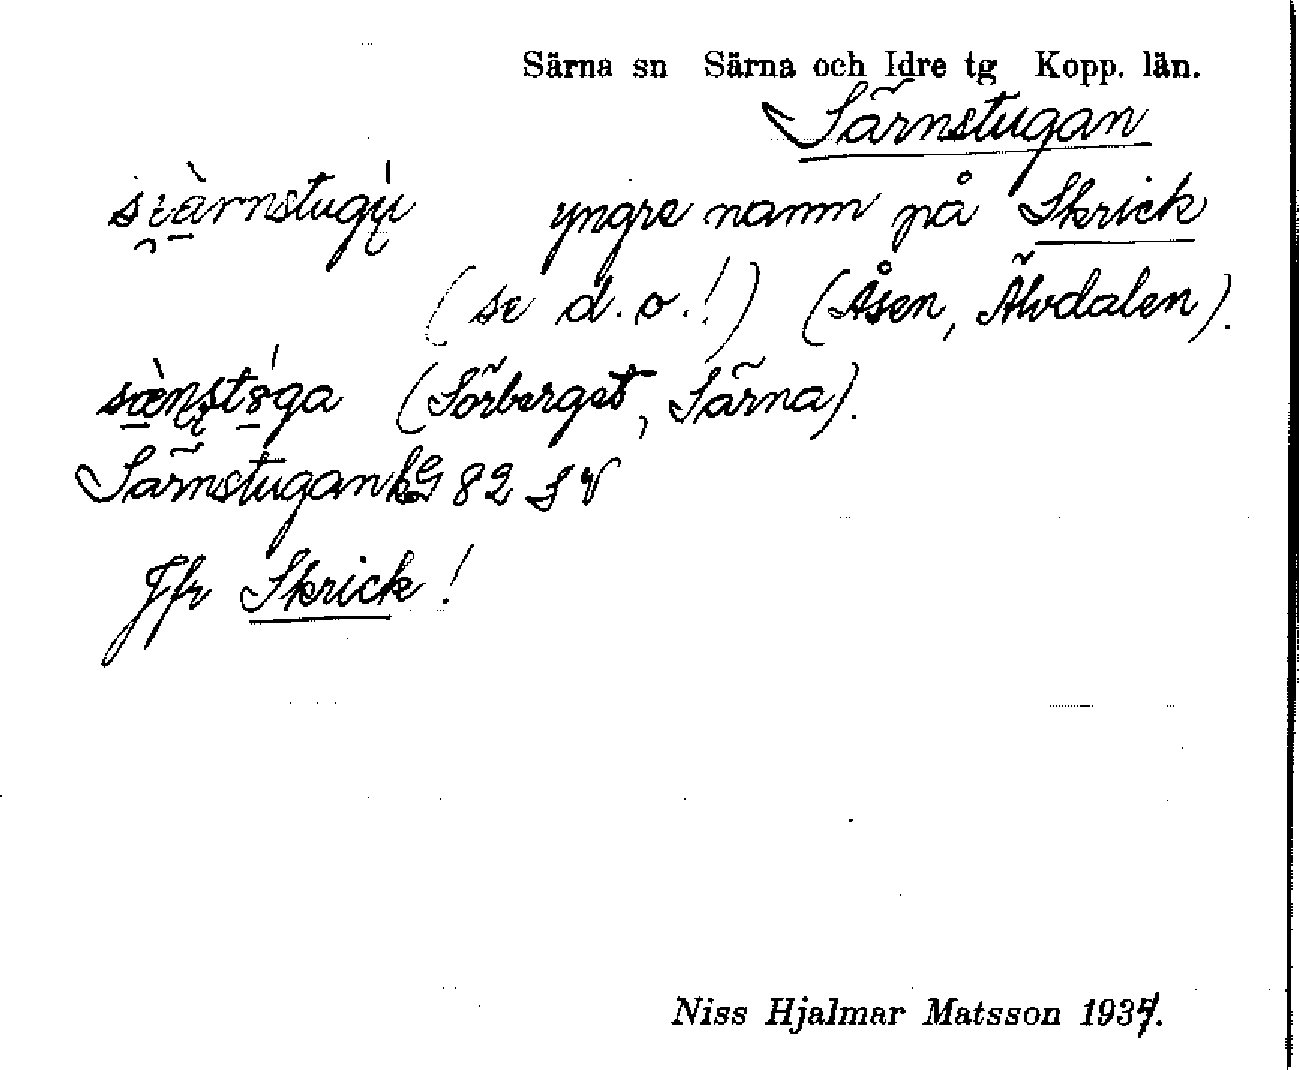 Särna sn Särna och Idre tg Kopp. län.
Särnstugan
yngre namn på Skrick
(se d.o.!) (Åsen, Älvdalen).
(Sörberget, Särna).
Särnstugan 82 SV
Jfr Skrick!
Niss Hjalmar Matsson 1934.